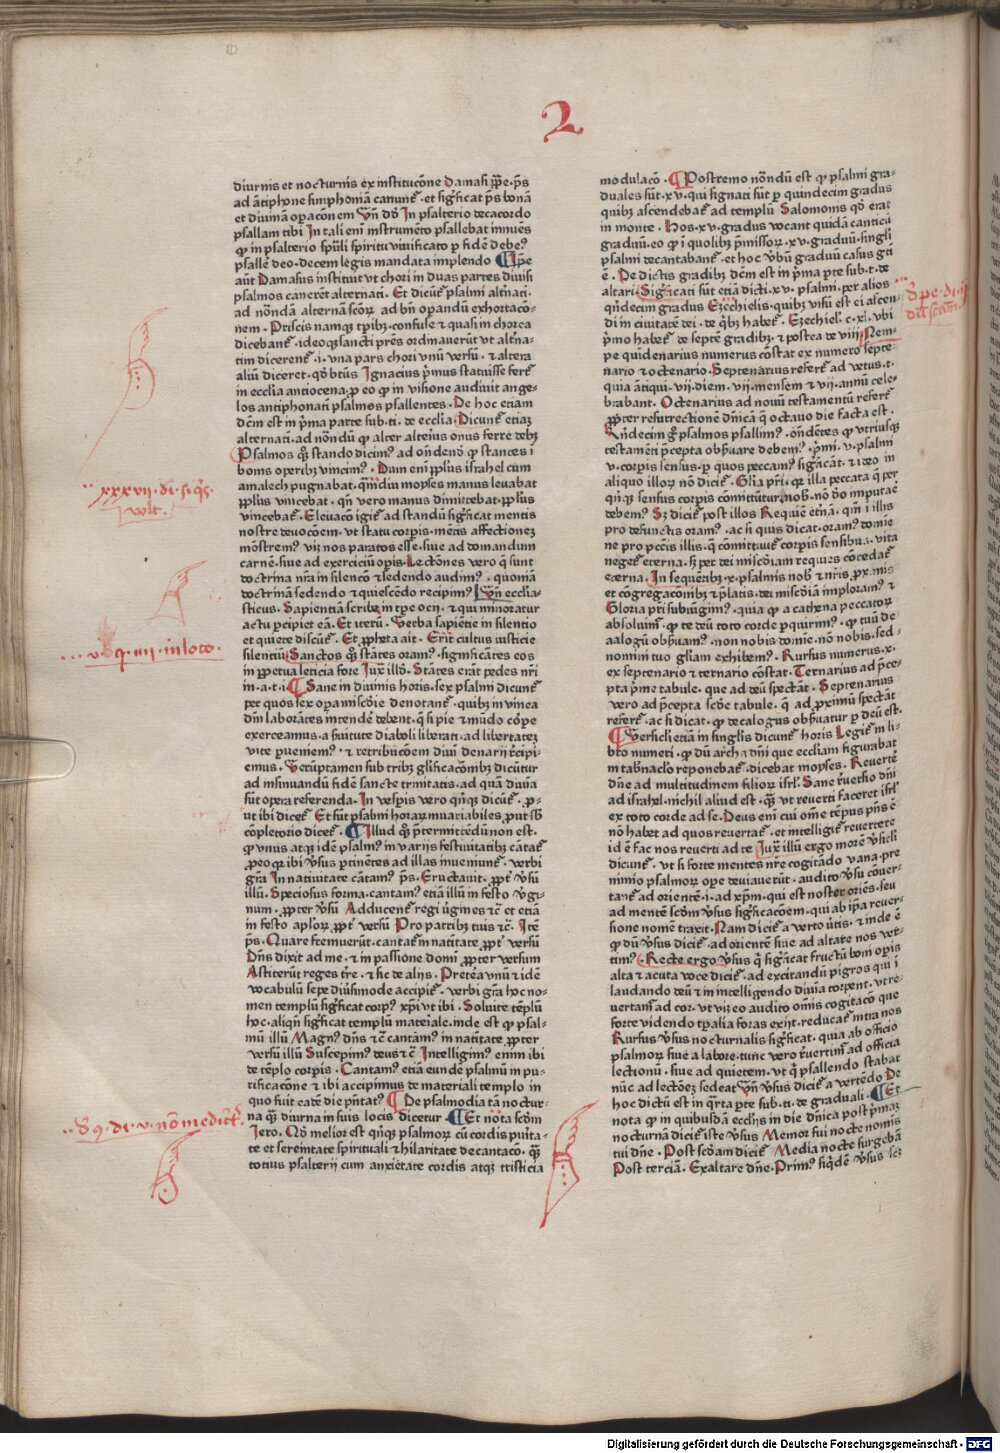 2
diurnis et nocturnis ex institucōne Damasi ꝑpe. p̄s
ad antiphone simphoniā canunt᷑. et sigͥficat p̄s bonā
et diuinā opaconem Vn̄ dō In psalterio decacordo
psallam tibi In tali eni instrumēto psallebat innues
ꝙ in psalterio spūli spiritu viuificato ꝑ fidē debe?
psalle deo. decem legis mandata implendo
aut Damasus instituit vt chori in duas partes diuisi
psalmos canerēt alternati. Et dicūt᷑ psalmi altn̄ati.
ad nōndā alternā scōꝝ ad bn̄ opandū exhortacō-
nem. Priscis namqꝫ tpibꝫ confuse ⁊ quasi in chorea
dicebant᷑. ideoqꝫ sancti pr̄es ordinauerūt vt alt̄na-
tim dicerent᷑ .i. vna pars chori vnū versū. ⁊ altera
aliū diceret. qō btūs Ignacius p̄mus statuisse fert᷑
in ecclia antiocena. ꝑ eo ꝙ in visione audiuit ange-
los antiphonati psalmos psallentes. De hoc etiam
dc̄m est in p̄ma parte sub. ti. de ecclia. Dicunt᷑ etiaꝫ
alternati. ad nōndū ꝙ alter alterius onus ferre debꝫ
Psalmos qꝫ stando dicim? ad on̄denō ꝙ stantes ī
bonis operibꝫ vincim?. Dum eni ꝑplus israhel cum
amalech pugnabat. qm̄diu moyses manus leuabat
ꝑplus vincebat. qn̄ vero manus dimittebat. ꝑplus
vincebat᷑. Eleuacō igit᷑ ad standū sigͥficat mentis
nostre deuocōem. vt statu corpis. mētis affectionez
mōstrem? viꝫ nos paratos esse. siue ad domandum
carnē. siue ad exerciciū opis. Lectōnes vero q̄ sunt
doctrina nr̄a in silencō ⁊ sedendo audim?. quoniā
doctrinā sedendo ⁊ quiescēdo recipim? Vn̄ ecclia-
sticus. Sapientiā scribe in tpe ocii. ⁊ qui minoratur
actu ꝑcipiet eā. Et iterū. Verba sapiētie in silentio
et quiete discūt᷑. Et ꝓphēta ait. Erit cultus iusticie
silentiū Sanctos qꝫ stātes oram?. significātes eos
in ꝑpetua leticia fore Jux̄ illō. Stātes erāt pedes nr̄i
in. a. t. i. Sane in diuinis horis. sex psalmi dicunt᷑
per quos sex opa misc̄die denotant᷑. quibꝫ in vinea
dn̄i laborātes intendē debent. q̄ si pie ⁊ mūdo cōpe
exerceamus. a ẜuitute diaboli liberati. ad libertatez
vite ꝑueniem?. ⁊ retribucōem diui denarij r̄cipi-
emus. Verūptamen sub tribꝫ gl̄ificacōibꝫ dicūtur
ad insinuandū fidē sancte trinitatis. ad quā diuīa
sūt opera referenda. In vespis vero qn̄qꝫ dicūt᷑. ꝓ-
ut ibi dicet᷑ Et sūt psalmi horaꝝ inuariabiles ꝓut sb̄
cōpletorio dicet᷑. Illud qꝫ p̄termittēdū non est.
ꝙ vnus atqꝫ idē psalm? in varijs festiuitatibꝫ cātat᷑
ꝓeo ꝙ ibi ꝟsus ptinētes ad illas inueniunt᷑. verbi
gr̄a In natiuitate cātam? p̄s. Eructauit. ꝓpt᷑ ꝟsū
illū. Speciosus forma. cantam? etiā illū in festo ꝟgi-
num. ꝓpter ꝟsū Adducent᷑ regi ꝟgines ⁊c̄ et etiā
in festo aploꝝ ꝓpt᷑ versū Pro patribꝫ tuis ⁊c̄. Itē
p̄s. Quare fremuerūt. cantat᷑ in natītate ꝓpt᷑ versū
Dn̄s dixit ad me. ⁊ in passiōne domī ꝓpter versum
Astiterūt reges t̄re. ⁊ sic de alijs. Pretēa vnū ⁊ idē
vocabulū sepe diūsimode accipit᷑. verbi gr̄a hoc no-
men templū sigͥficat corp? xp̄i vt ibi. Soluite tēplū
hoc. aliqn̄ sigͥficat templū materiale. inde est ꝙ psal-
mū illū Magn? dn̄s ⁊c̄ cantam? in natītate ꝓpter
versū illū Suscepim? deus ⁊c̄ Intelligim? enim ibi
de tēplo corpis. Cantam? etiā eundē psalmū in pu-
rificacōne ⁊ ibi accipimus de materiali templo in
quo fuit eadē die pn̄tat? De psalmodia tā noctur-
na qꝫ diurna in suis locis dicetur. Et nota scd̄m
Jero. Nō melior est qn̄qꝫ psalmoꝝ cū cordis purita-
te et serenitate spirituali ⁊ hilaritate decantacō. qꝫ
totius psalterij cum anxietate cordis atqꝫ tristicia
modulacō. Postremo nōndū est ꝙ psalmi gra-
duales sūt. xv. qui signati sūt ꝑ quindecim gradus
quibꝫ ascendebat᷑ ad templū Salomonis qō erat
in monte. Hos. xv. gradus vocant quidā canticū
graduū. eo ꝙ ī quolibꝫ p̄missoꝝ. xv. graduū. singli
psalmi decantabant᷑. et hoc ꝟbū graduū casus gti
ē. De dictis gradibꝫ dc̄m est in p̄ma pte sub. t. de
altari. Sigͥficati sūt etiā dicti. xv. psalmi. per alios
qn̄decim gradus Ezechielis. quibꝫ visū est ei ascen-
di in ciuitatē dei. de q̄bꝫ habet᷑. Ezechiel. c. xl. vbi
p̄mo habet᷑ de septē gradibꝫ. ⁊ postea de viij. Nem-
pe quidenarius numerus cōstat ex numero septe-
nario ⁊ octenario. Septenarius refert᷑ ad vetus. t.
quia ātiqui. vij. diem. vij. mensem ⁊ vij. annū cele-
brabant. Octenarius ad nouū testamentū refert᷑
ꝓpter resurrectionē dn̄icā q̄ octauo die facta est.
Quīdecim gͦ psalmos psallim?. on̄dētes ꝙ vtriusqꝫ
testamēti p̄cepta obẜuare debem?. p̄mi. v. psalmi
v. corpis sensus. ꝑ quos peccam? sigͥficāt. ⁊ ideo in
aliquo illoꝝ nō dicit᷑. Glīa pr̄i. qꝛ illa peccata q̄ ꝑ
qn̄qꝫ sensus corpis cōmittūtur. nob̄. nō dō imputar̄
debem? Sꝫ dicit᷑ post illos Requiē etn̄ā. qm̄ in illis
pro defunctis oram?. ac si quis dicat. oram? domīe
ne pro pecc̄is illis. q̄ cōmittūt᷑ corpis sensibus. vita
neget᷑ eterna. sꝫ per dei misc̄diam requies cōcedat᷑
eterna. In sequētibꝫ. x. psalmis nob̄ ⁊ nr̄is ꝓx mis
et cōgregacōnibꝫ ⁊ p̄latis. dei misc̄diā imploram? ⁊
Gloria pr̄i subiūgim?. quia ꝙ a cathena peccatoꝝ
absoluim?. ꝙ te deū toto corde ꝑquirim?. ꝙ tuū de
calogū obẜuam?. non nobis domīe nō nobis. sed.
nomini tuo gl̄iam exhibem?. Rursus numerus. x.
ex septenario ⁊ ternario cōstat. Ternarius ad p̄ce-
pta p̄me tabule. que ad deū spectāt. Septenarius
vero ad p̄cepta scd̄e tabule. q̄ ad ꝓximū spectāt
refert᷑. ac si dicat. ꝙ decalogus obẜuatur ꝑ deū est.
Versiculi etiā in singlis dicunt᷑ horis Legit᷑ in li-
bro numeri. ꝙ dū archa dn̄i que eccliam figurabat
in tab̄naclo reponebat᷑. dicebat moyses. Reuertē
dn̄e ad multitudinem filioꝝ isrl̄. Sane r̄uertio dn̄i
ad israhel. nichil aliud est. qꝫ vt reuerti faceret isrl̄
ex toto corde ad se. Deus eni cui om̄e tēpus pn̄s ē
nō habet ad quos reuertat᷑. et intelligit᷑ reuertere
id ē fac nos reuerti ad te Jux̄ illū ergo morē ꝟsicli
dicunt᷑. vt si forte mentes nr̄e cogitādo vana. pre
nimio psalmoꝝ ope deuiauerūt. audito ꝟsu cōuer-
tant᷑ ad orientē .i. ad xp̄m. qui est noster oriēs. seu
ad mentē scd̄m ꝟsus sigͥficacōem. qui ab ip̄a reuer-
sione nomē traxit. Nam dicit᷑ a verto ūtis. ⁊ inde ē
ꝙ dū ꝟsus dicit᷑. ad orientē siue ad altare nos ver-
tim?. Recte ergo ꝟsus q̄ sigͥficat fructū boni opis
alta ⁊ acuta voce dicit᷑. ad excitandū pigros qui ī
laudando deū ⁊ in intelligendo diuīa torpent. vt re-
uertant᷑ ad cor. vt viꝫ eo audito om̄is cogitacō que
forte videndo tꝑalia foras exijt. reducat᷑ intra nos
Rursus ꝟsus nocturnalis sigͥficat. quia ab officio
psalmoꝝ siue a labore. tunc vero r̄uertim? ad officia
lectionū. siue ad quietem. vt q̄ psallendo stabat
nūc ad lectōeꝫ sedeat Vn̄ ꝟsus dicit᷑ a vertēdo De
hoc dictū est in q̄rta pte sub. ti. de graduali. Et
nota ꝙ in quibusdā eccliis in die dn̄ica post p̄maꝫ
nocturnā dicit᷑ iste ꝟsus Memor fui nocte nomīs
tui dn̄e. Post scd̄am dicit᷑ Media nocte surgebā
Post terciā. Exaltare dn̄e. Prim? siqͥdē ꝟsus seꝫ
xxxvii. di. §. q̄s.
volt.
v. q. iiii. in loto.
Digitalisierung gefördert durch die Deutsche Forschungsgemeinschaft - DFG